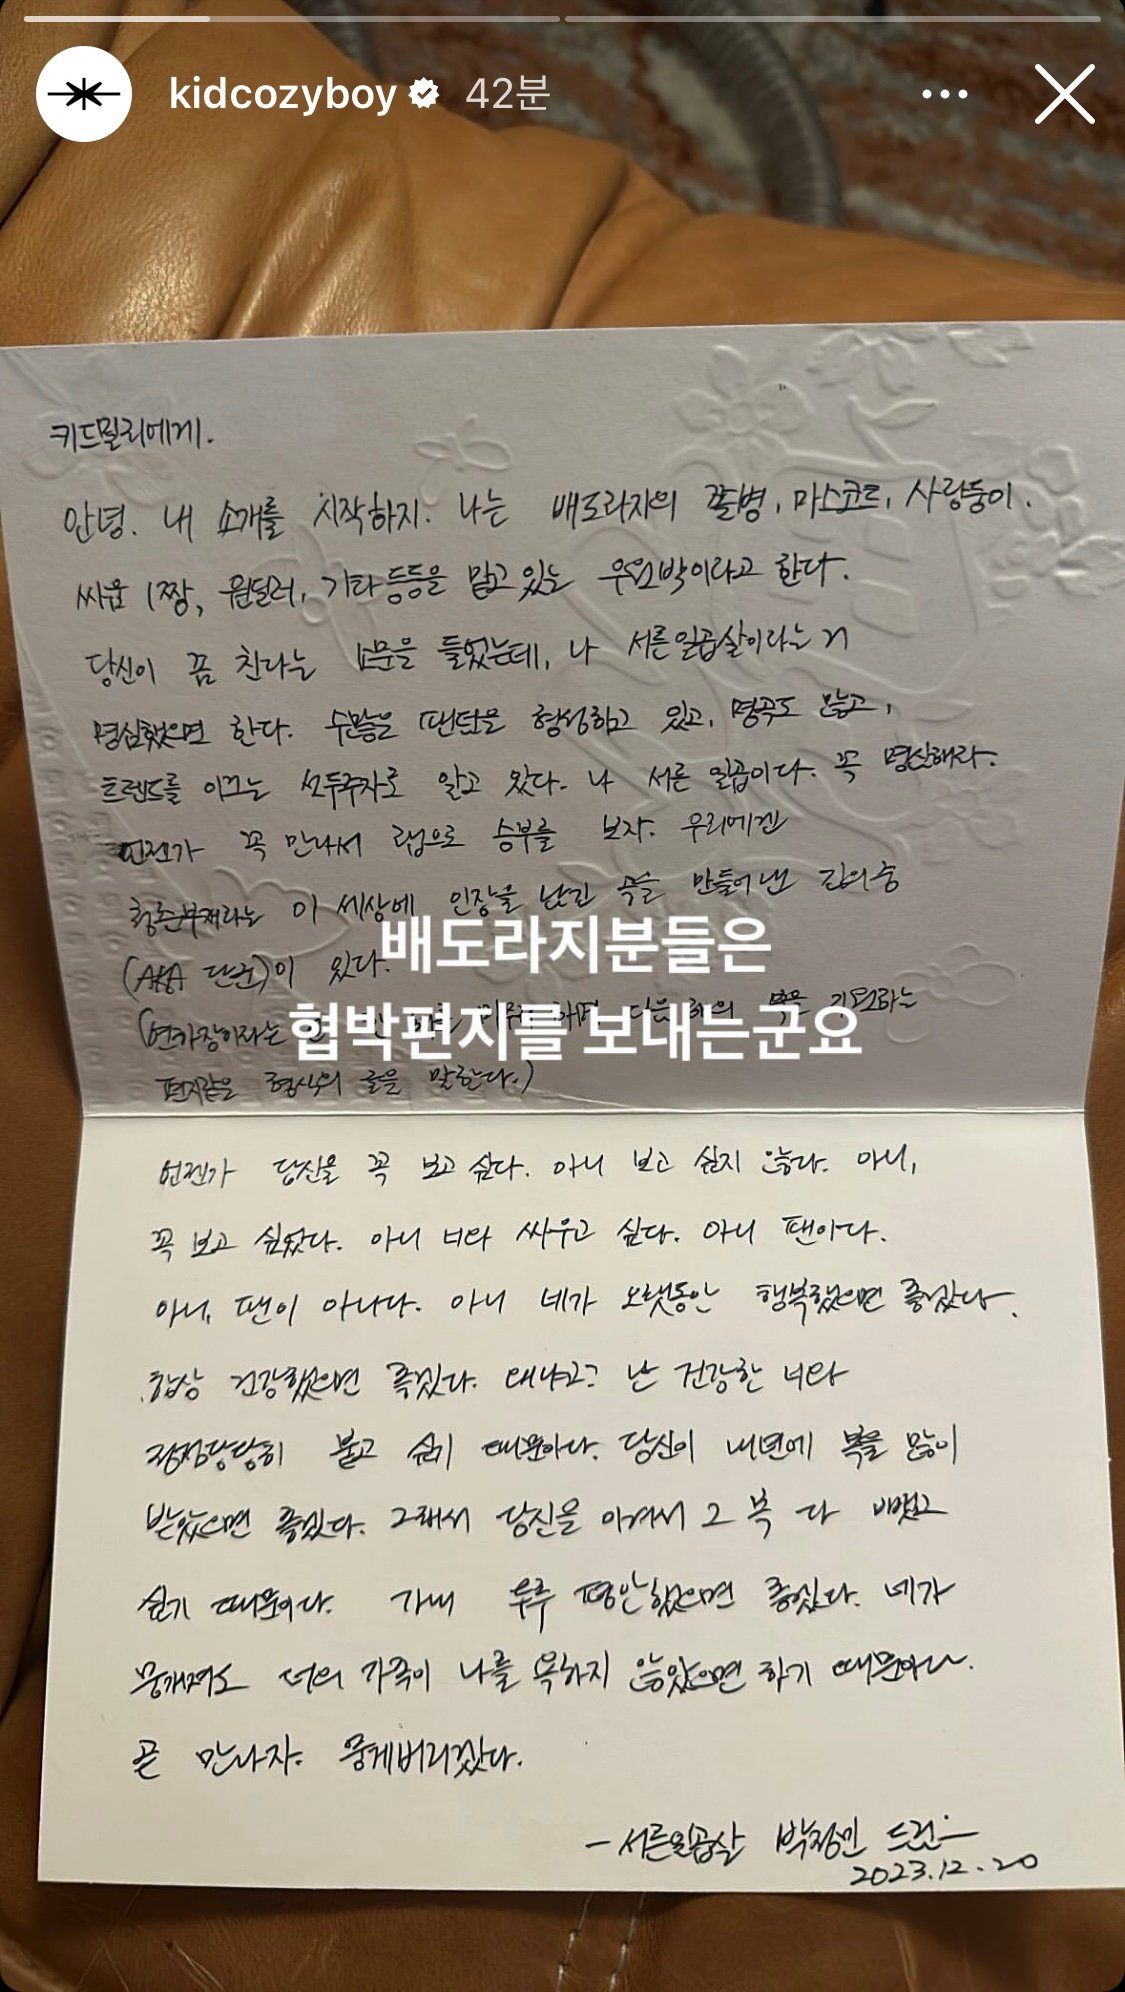 kidcozyboy 42분
키드밀리에게.
안녕. 내 소개를 시작하지. 나는 배도라지의 쫄병, 마스코트, 사랑둥이.
싸움 1짱, 원딜러, 기타등등을 맡고있는 우원박이라고 한다.
당신이 꿈 친다는 소문을 들었는데, 나 서른일곱살이라는거
명심했으면 한다. 수많은 팬덤을 형성하고 있고, 명곡도 많고,
트렌드를 이끄는 선두주자로 알고 있다. 나 서른 일곱이다. 꼭 명심해라.
언젠가 꼭 만나서 랩으로 승부를 보자. 우리에겐
청춘부재라는 이 세상에 인장을 남긴 곡을 만들어낸
단군)이 있다.
배도라지분들은
(연카장이라는 복을 기원하는
협박편지를 보내는군요
편지같은 형식의 글을 말한다.)
언젠가 당신을 꼭 보고 싶다. 아니 보고 싶지 않다. 아니,
꼭 보고 싶었다. 아니 너와 싸우고 싶다. 아니 팬이다.
아니, 팬이 아니다. 아니 네가 오랫동안 행복했으면 좋겠다.
항상 건강했으면 좋겠다. 왜냐고? 난 건강한 너와
정정당당히 붙고 싶기 때문이다. 당신이 내년에 복을 많이
받았으면 좋겠다. 그래서 당신을 이겨서 그 복 다 뺏고
싶기 때문이다. 가내 두루 평안했으면 좋겠다. 네가
뭉개져도 너의 가족이 나를 욕하지 않았으면 하기 때문이다.
곧 만나자. 뭉게버리겠다.
- 서른일곱살 박정민 드림 -
2023.12.20